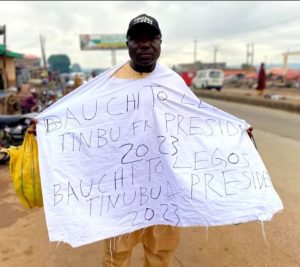 BAUCHI TO
TINBU FR PRESIDE
2023
LEGOS
BAUCHI TO
TINUBU PRESIDE
2023